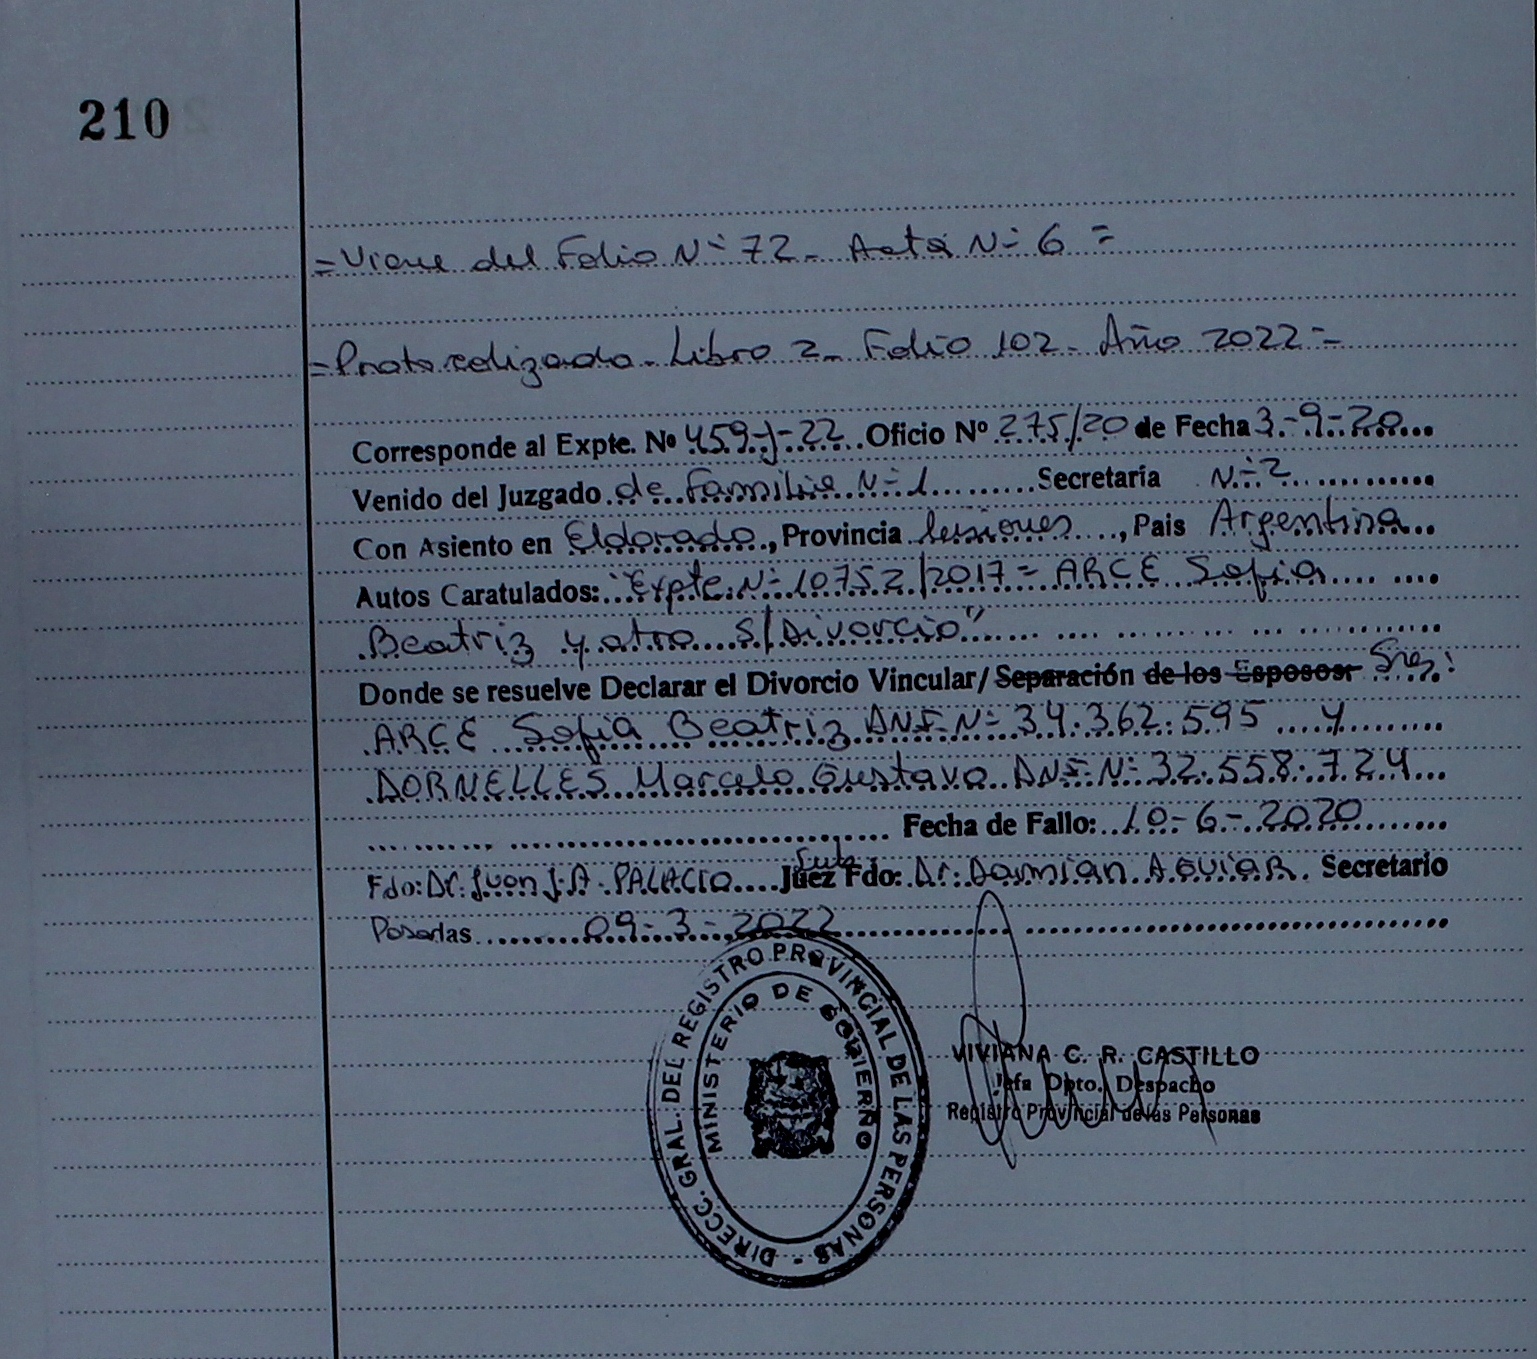 210
= Viene del Folio N° 72 - Acta N° 6 =
= Protocolizado - Libro 2 - Folio 102 - Año 2022 =
Corresponde al Expte. Nº 459-J-22 Oficio Nº 275/20 de Fecha 3-9-20
Venido del Juzgado de Familia N° 1 Secretaría N° 2
Con Asiento en Eldorado, Provincia Misiones, Pais Argentina
Autos Caratulados: "Expte. N° 10752/2017 = ARCE Sofia
Beatriz y otro S/Divorcio"
Donde se resuelve Declarar el Divorcio Vincular/Separación de los Esposos: Sres:
ARCE Sofia Beatriz DNI N° 34.362.595 y
DORNELLES Marcelo Gustavo DNI N° 32.558.724
Fecha de Fallo: 10-6-2020
Fdo: Dr. Juan J.A. PALACIO Juez Fdo: Dr. Damian AGUIAR. Secretario
Sub
Posadas 09-3-2022
DIRECC. GRAL. DEL REGISTRO PROVINCIAL DE LAS PERSONAS -
MINISTERIO DE GOBIERNO
VIVIANA C. R. CASTILLO
Jefa Dpto. Despacho
Registro Provincial de las Personas